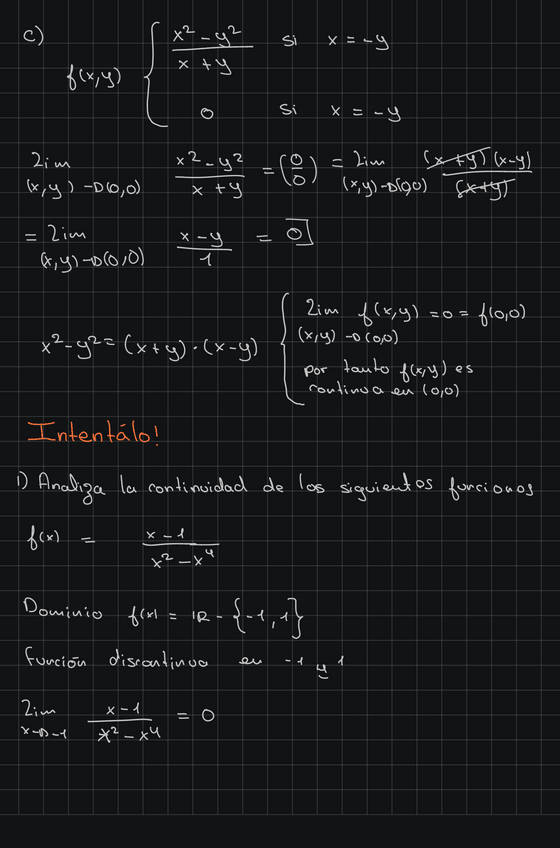 c)
f(x,y) { x² - y² / x + y si x = -y
0 si x = -y
lim (x,y)→(0,0) x² - y² / x + y = (0/0) = lim (x,y)→(0,0) (x+y)(x-y) / (x+y)
= lim (x,y)→(0,0) x - y / 1 = 0
x² - y² = (x+y) · (x-y) { lim (x,y)→(0,0) f(x,y) = 0 = f(0,0)
por tanto f(x,y) es
continua en (0,0)
Intentálo!
1) Analiza la continuidad de los siguientos funcionos
f(x) = x - 1 / x² - x⁴
Dominio f(x) = IR - {-1, 1}
función discontinua en -1 y 1
lim x→-1 x - 1 / x² - x⁴ = 0